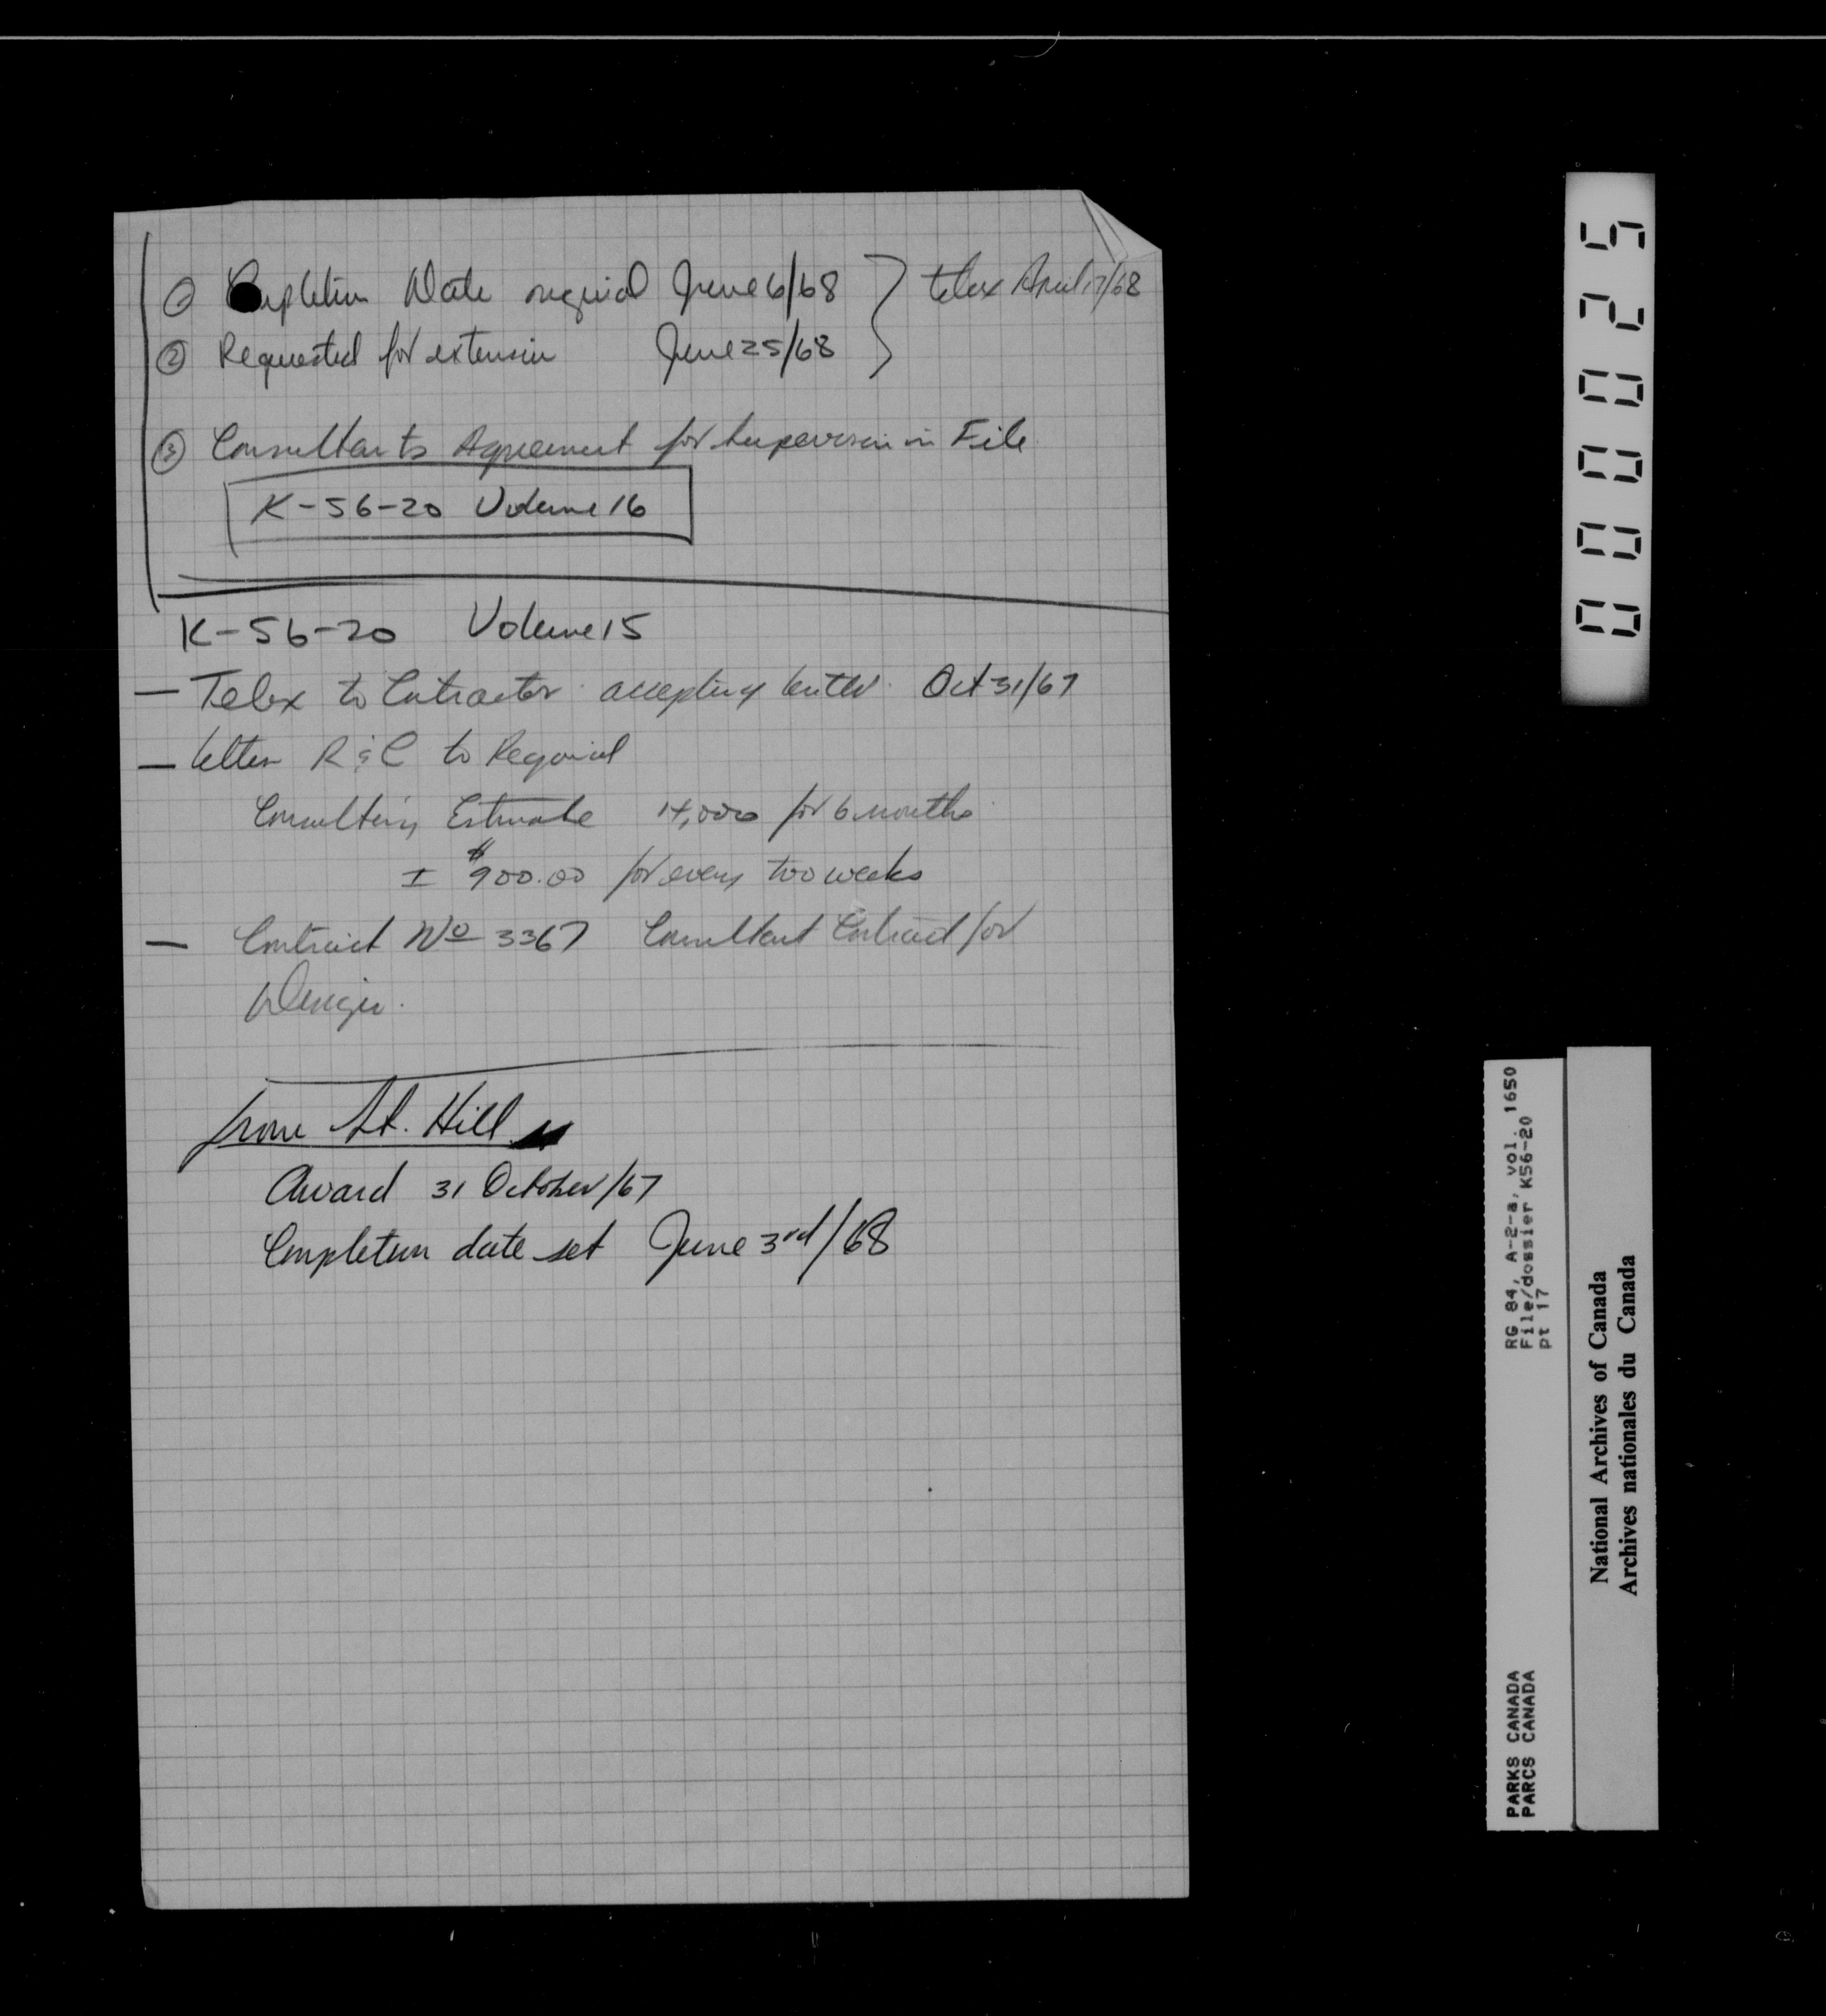 ① Completion Date original June 6/68 } telex April 17/68
② Requested for extension June 25/68
③ Consultants Agreement for Supervision in File
K-56-20 Volume 16
K-56-20 Volume 15
— Telex to Contractor accepting tender Oct 31/67
— letter R & C to Regional
Consulting Estimate 14,000 for 6 months
± $900.00 for every two weeks
— Contract No 3367 Consultant Contract for
Design.
from St. Hill
Award 31 October/67
Completion date set June 3rd/68
000025
RG 84, A-2-a, vol. 1650
File/dossier K56-20
pt 17
PARKS CANADA
PARCS CANADA
National Archives of Canada
Archives nationales du Canada